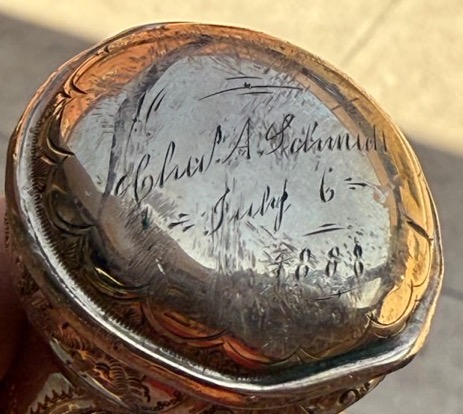 Chas. A. Schmidt
July 6
1888